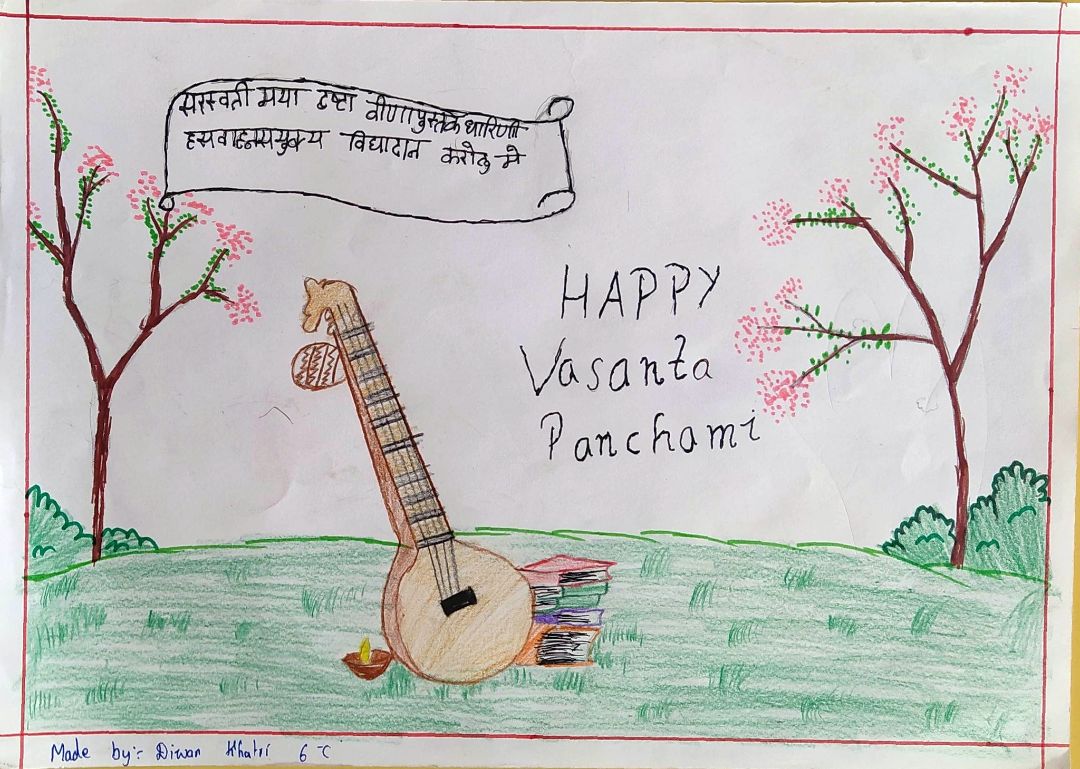 सरस्वती मया दृष्टा वीणापुस्तकधारिणी
हंसवाहनसंयुक्त्य विद्यादान करोतु मे
HAPPY
Vasanta
Panchami
Made by:- Diwan Khatri 6 C